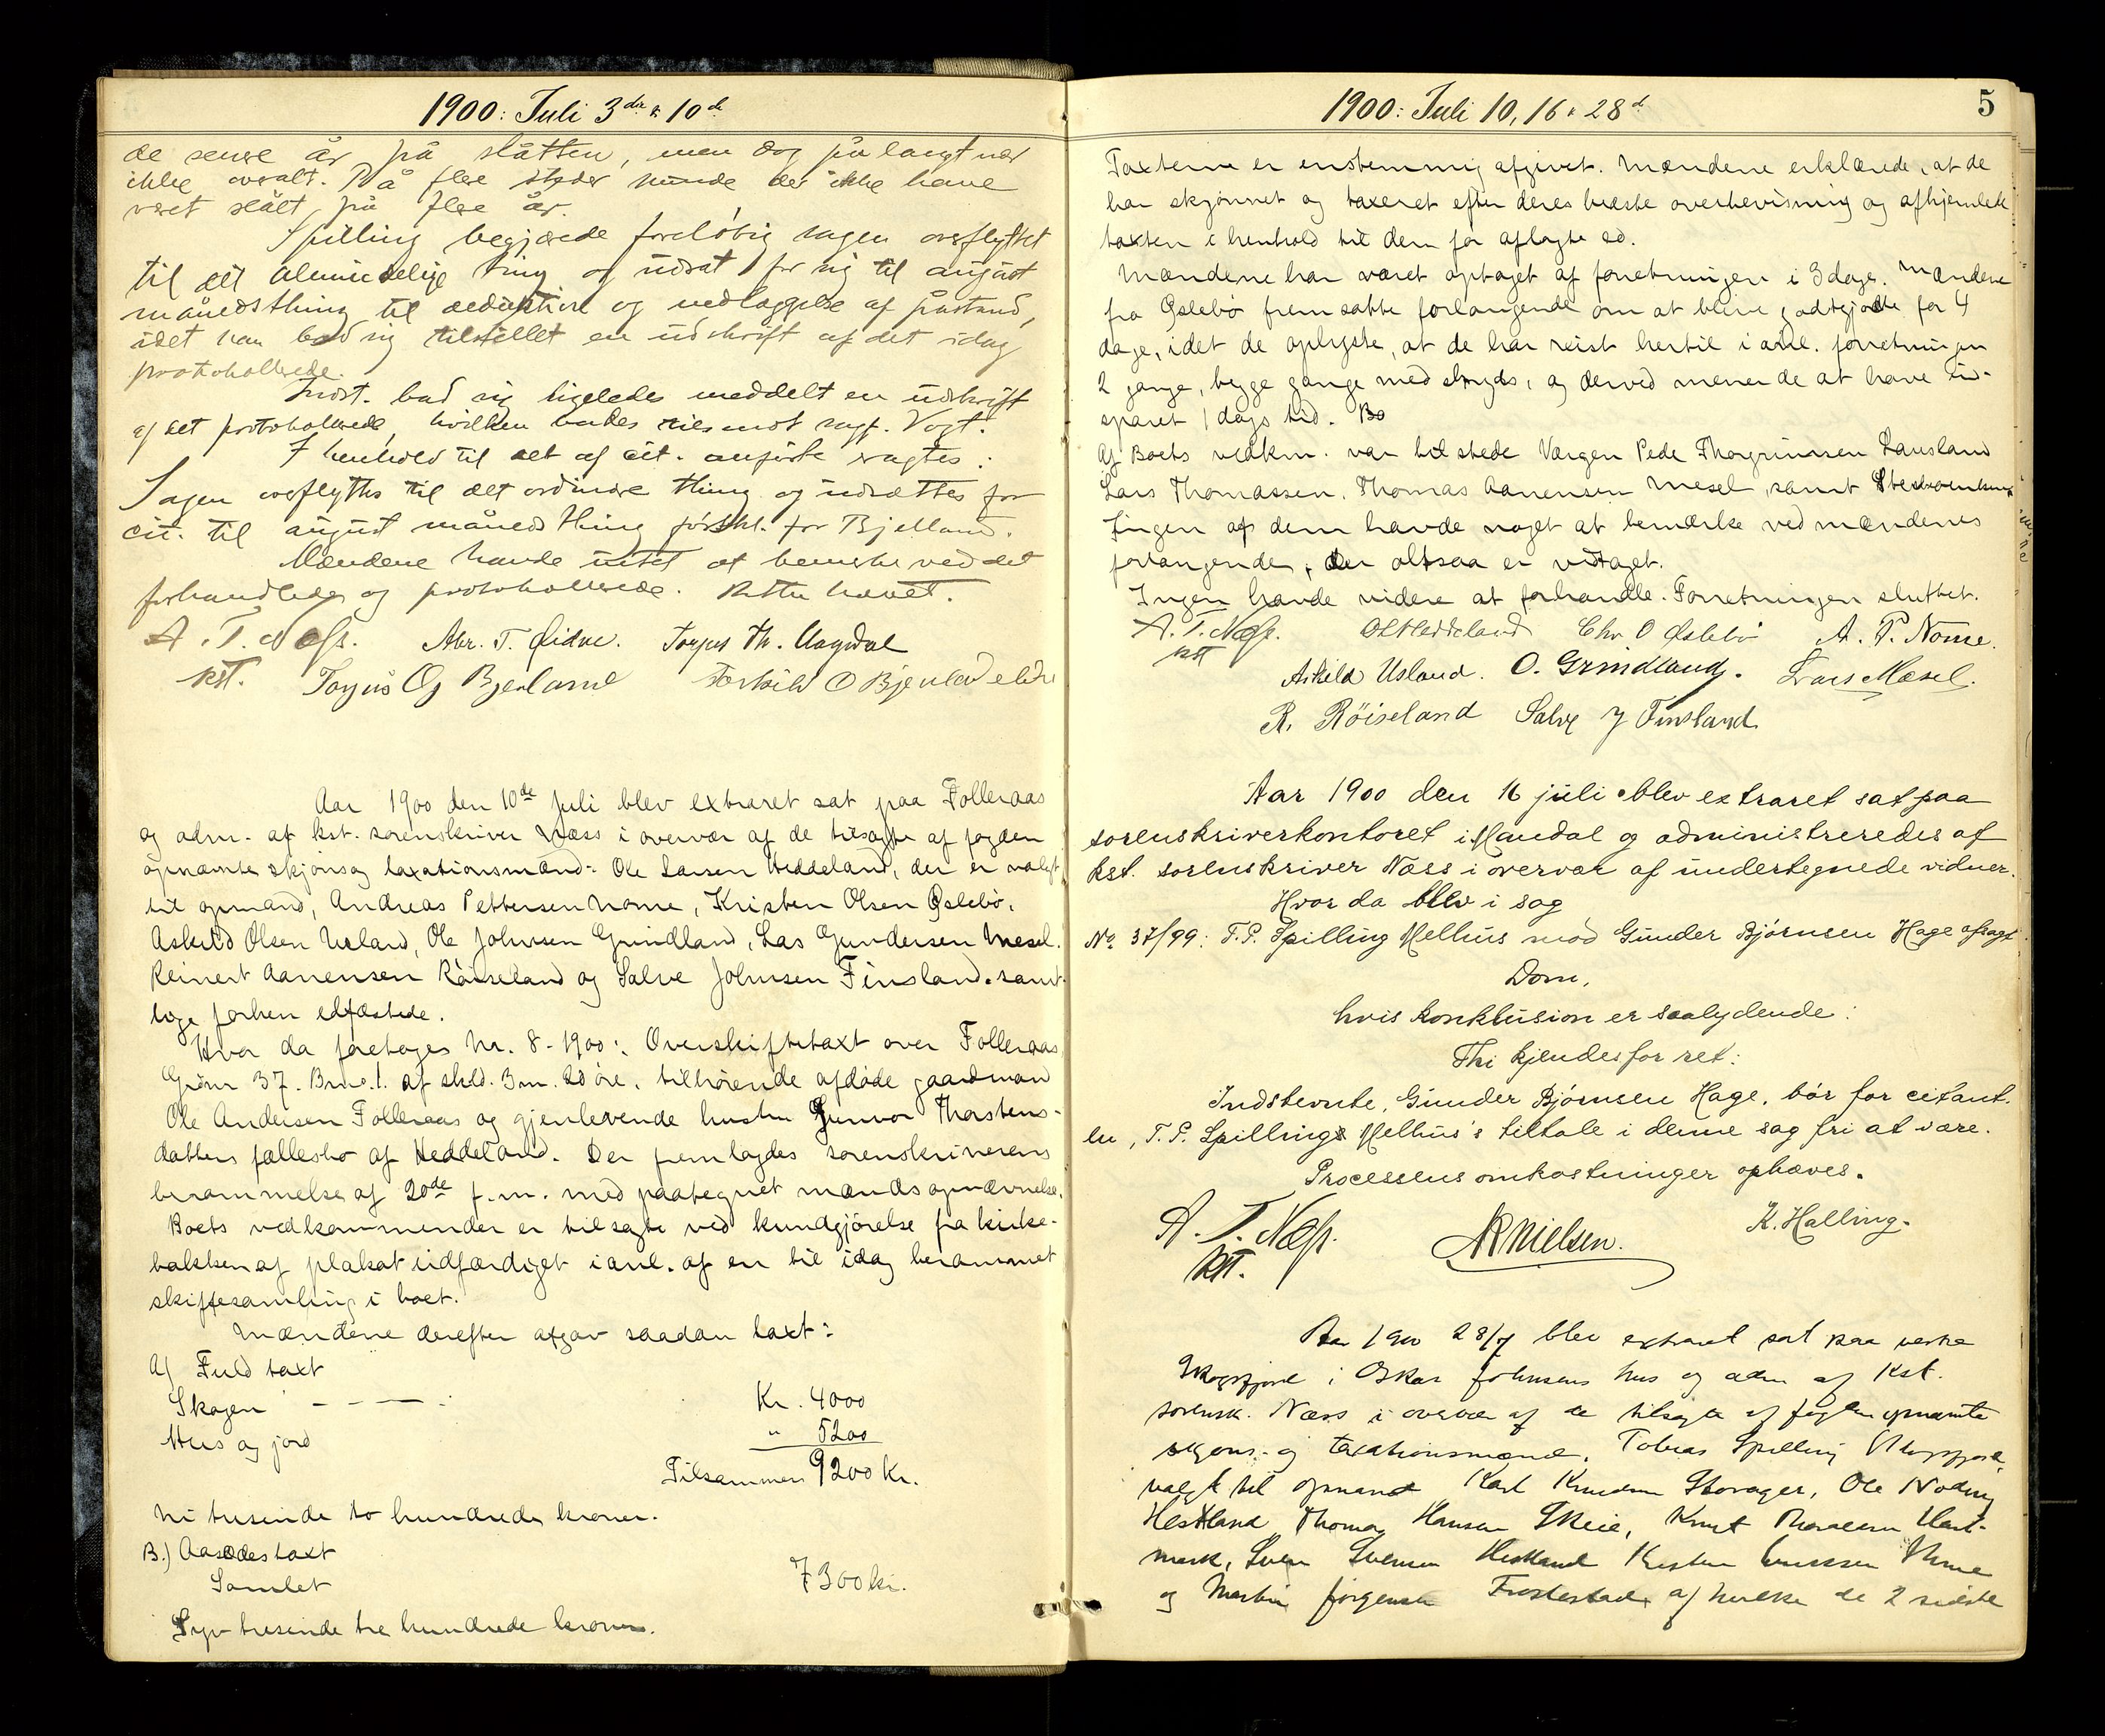 1900: Juli 3die & 10de
de senere år på slåtten, men dog på langt nær
ikke overalt. På flere steder kunde der ikke have
været slått på flere år.
Spilling begjærede foreløbig sagen overflyttet
til det almindelige thing og udsat for sig til august
månedsthing til deduktion og nedlæggelse af påstand,
idet han bad sig tilstillet en udskrift af det idag
protokollerede.
Indst. bad sig ligeledes meddelt en udskrift
af det protokollerede, hvilken bedes tilsendt sagf. Vogt.
I henhold til det af cit. anførte vagtes:
Sagen overflyttes til det ordinære thing og udsættes for
cit. til august månedsthing førstk. for Bjelland.
Mændene havde intet at bemerke ved det
forhandlede og protokollerede. Retten hævet.
A. T. Næss. Abr. T. Eidne. Torjus Th. Ungdal
kst. Torjus Og Bjerland Torkild O Bjerland eldre
Aar 1900 den 10de Juli blev extraret sat paa Følleraas
og adm. af kst. sorenskriver Næss i overvær af de tilsagte af fogden
opnævnte skjøns og taxationsmænd: Ole Larsen Heddeland, der er valgt
til opmand, Andreas Pettersen Nome, Kristen Olsen Øslebø,
Askild Olsen Usland, Ole Johnsen Grindland, Las Gundersen Mesel.
Reinert Aanensen Røiseland og Salve Johnsen Finsland. samt-
lige forhen edfæstede.
Hvor da foretoges Nr. 8-1900: Overskiftetaxt over Følleraas
Gnrn 37. Brno. 1. af skld. 3 m. 20 øre, tilhørende afdøde gaardmand
Ole Andersen Følleraas og gjenlevende hustru Gunvor Thorstens-
datters fællesbo af Heddeland. Der fremlagdes sorenskriverens
berammelse af 20de f.m. med paategnet mændsopnævnelse.
Boets vedkommender er tilsagte ved kundgjørelse fra kirke-
bakken af plakat udfærdiget i anl. af en til idag berammet
skiftesamling i boet.
Mændene derefter afgav saadan taxt:
A) Fuld taxt
Skogen - - — . Kr. 4000
Hus og jord " 5200
Tilsammen 9200 Kr.
Ni tusinde to hundrede kroner.
B.) Aasædestaxt
Samlet 7300 kr.
Syv tusinde tre hundrede kroner.
1900: Juli 10, 16 & 28d
5
Taxterne er enstemmig afgivet. Mændene erklærede, at de
har skjønnet og taxeret efter deres bedste overbevisning og afhjemlede
taxten i henhold til den før aflagte ed.
Mændene har været optaget af forretningen i 3 dage. Mændene
fra Øslebø fremsatte forlangende om at blive godtgjort for 4
dage, idet de oplyste, at de har reist hertil i anl. forretningen
2 gange, begge gange med skyds, og derved mener de at have ud-
sparet 1 dags tid. Bo
Af Boets vedkm. var tilstede Værgen Peder Thorgrimsen Lausland
Lars Thomassen. Thomas Aanensen Mesel, samt
Ingen af dem havde noget at bemærke ved mændenes
forlangende, der altsaa er vedtaget.
Ingen havde videre at forhandle. Forretningen sluttet.
A. T. Næss. OL Heddeland Chr. O Øslebø A. P. Nome.
kst
Askild Usland. O. Grindland. Lars Mesel.
R. Røiseland Salve J Finsland
Aar 1900 den 16 juli blev extraret sat paa
sorenskriverkontoret i Mandal og administreredes af
kst. sorenskriver Næss i overvær af undertegnede vidner.
Hvor da blev i sag
No. 37/99: T.P. Spilling Melhus mod Gunder Bjørnsen Hage afsagt
Dom,
hvis konklusion er saalydende:
Thi kjendes for ret:
Indstevnte, Gunder Bjørnsen Hage, bør for citant.
en, T. P. Spilling Melhus's tiltale i denne sag fri at være.
Processens omkostninger ophæves.
A. T. Næss. NR Nielsen. K. Halling.
kst.
Aar 1900 28/7 blev extraret sat paa vestre
Skogsfjord i Oskar Johnsens hus og adm af Kst.
sorensk. Næss i overvær af de tilsagte af fogden opnævnte
skjøns- og taxationsmænd. Tobias Spilling Skogsfjord,
valgt til opmand Karl Knudsen Storager, Ole Noding
Hestland Thomas Hansen Skeie, Knut Hart-
mark, Sven Svensen Hesland Kristen
og Martin Jørgensen Frostestad, af hvilke de 2 sidste